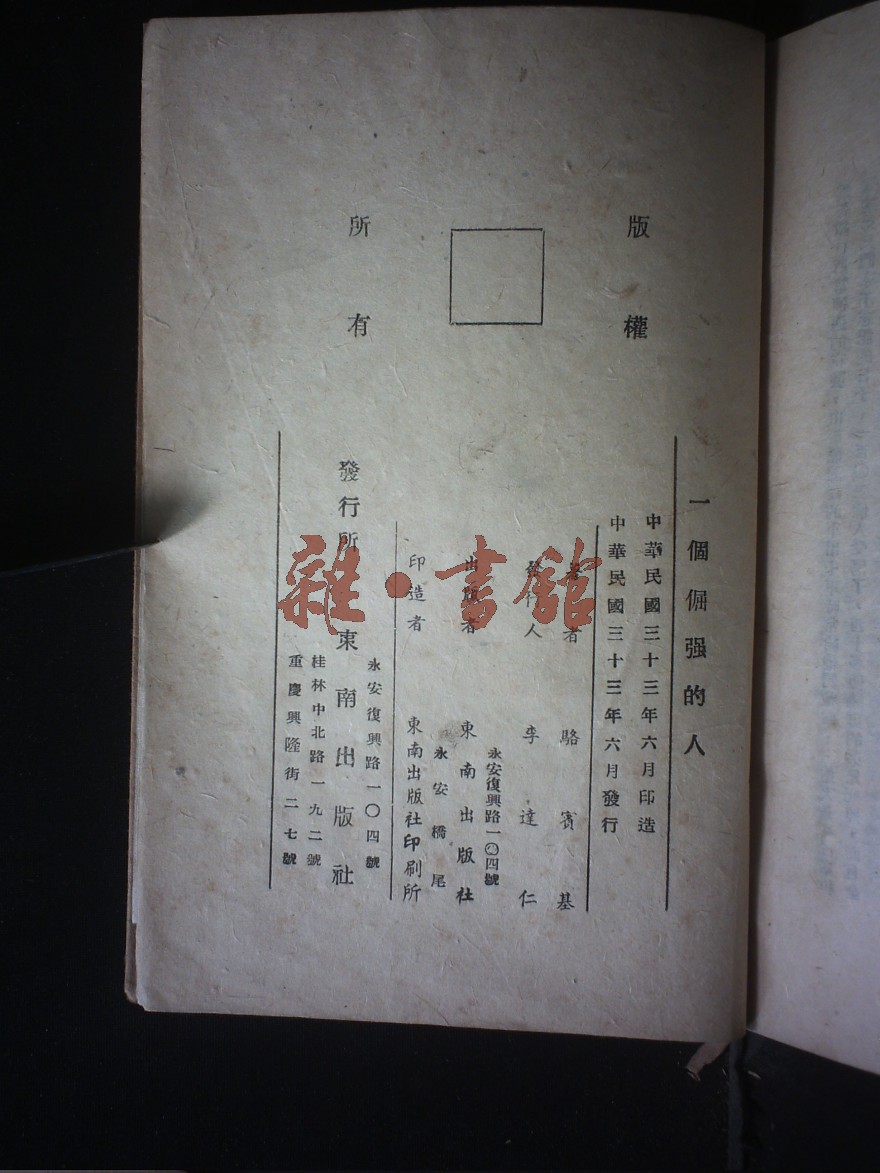 版權
所有
一個倔强的人
中華民國三十三年六月印造
中華民國三十三年六月發行
著者 駱賓基
發行人 李達仁
永安復興路一〇四號
出版者 東南出版社
永安橋尾
印造者 東南出版社印刷所
永安復興路一〇四號
發行所 東南出版社
桂林中北路一九二號
重慶興隆街二七號
雜·書館